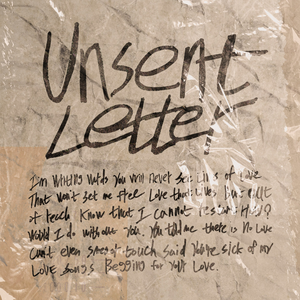 Unsent
Letter
I'm writing words you will never see Lines of Love
That won't set me free Love that Lives but out
of reach Know that I cannot
Would I do without you You told me there is no Love
Can't even touch said You're sick of my
Love songs Begging for Your Love.